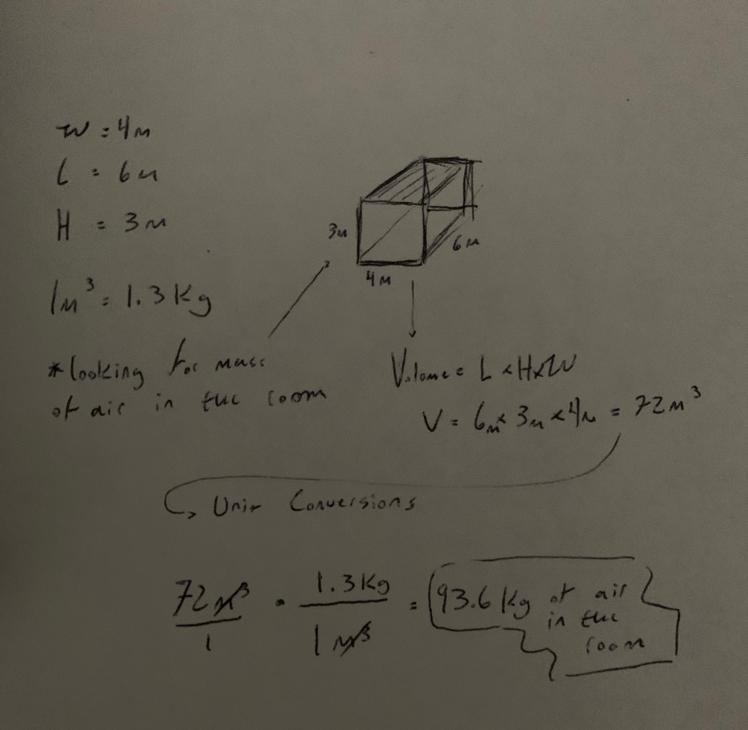 W = 4m
L = 6m
H = 3m
1m³ = 1.3 Kg
*looking for mass
of air in the room
3m
4m
6m
Volume = L × H × W
V = 6m × 3m × 4m = 72m³
Unit Conversions
72m³/1 · 1.3Kg/1m³ = 93.6 Kg of air
in the
room